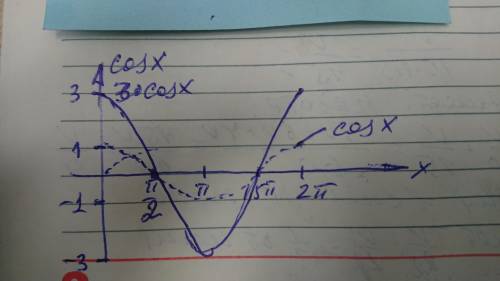 cosx
3 3•cosx
1 cosx
x
π/2 π 1,5π 2π
-1
-3